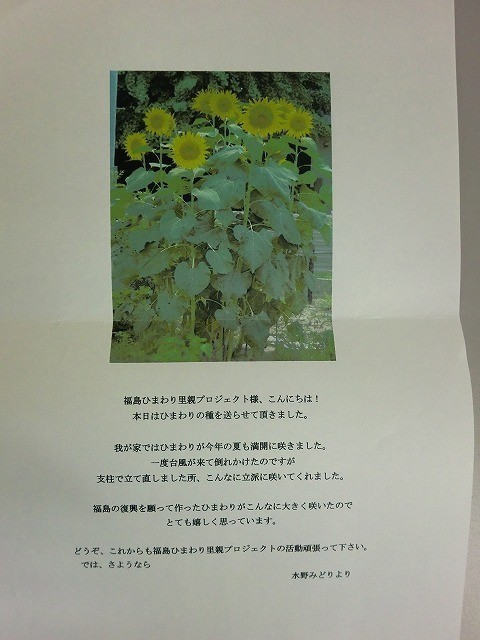 福島ひまわり里親プロジェクト様、こんにちは！
本日はひまわりの種を送らせて頂きました。
我が家ではひまわりが今年の夏も満開に咲きました。
一度台風が来て倒れかけたのですが
支柱で立て直しました所、こんなに立派に咲いてくれました。
福島の復興を願って作ったひまわりがこんなに大きく咲いたので
とても嬉しく思っています。
どうぞ、これからも福島ひまわり里親プロジェクトの活動頑張って下さい。
では、さようなら
水野みどりより